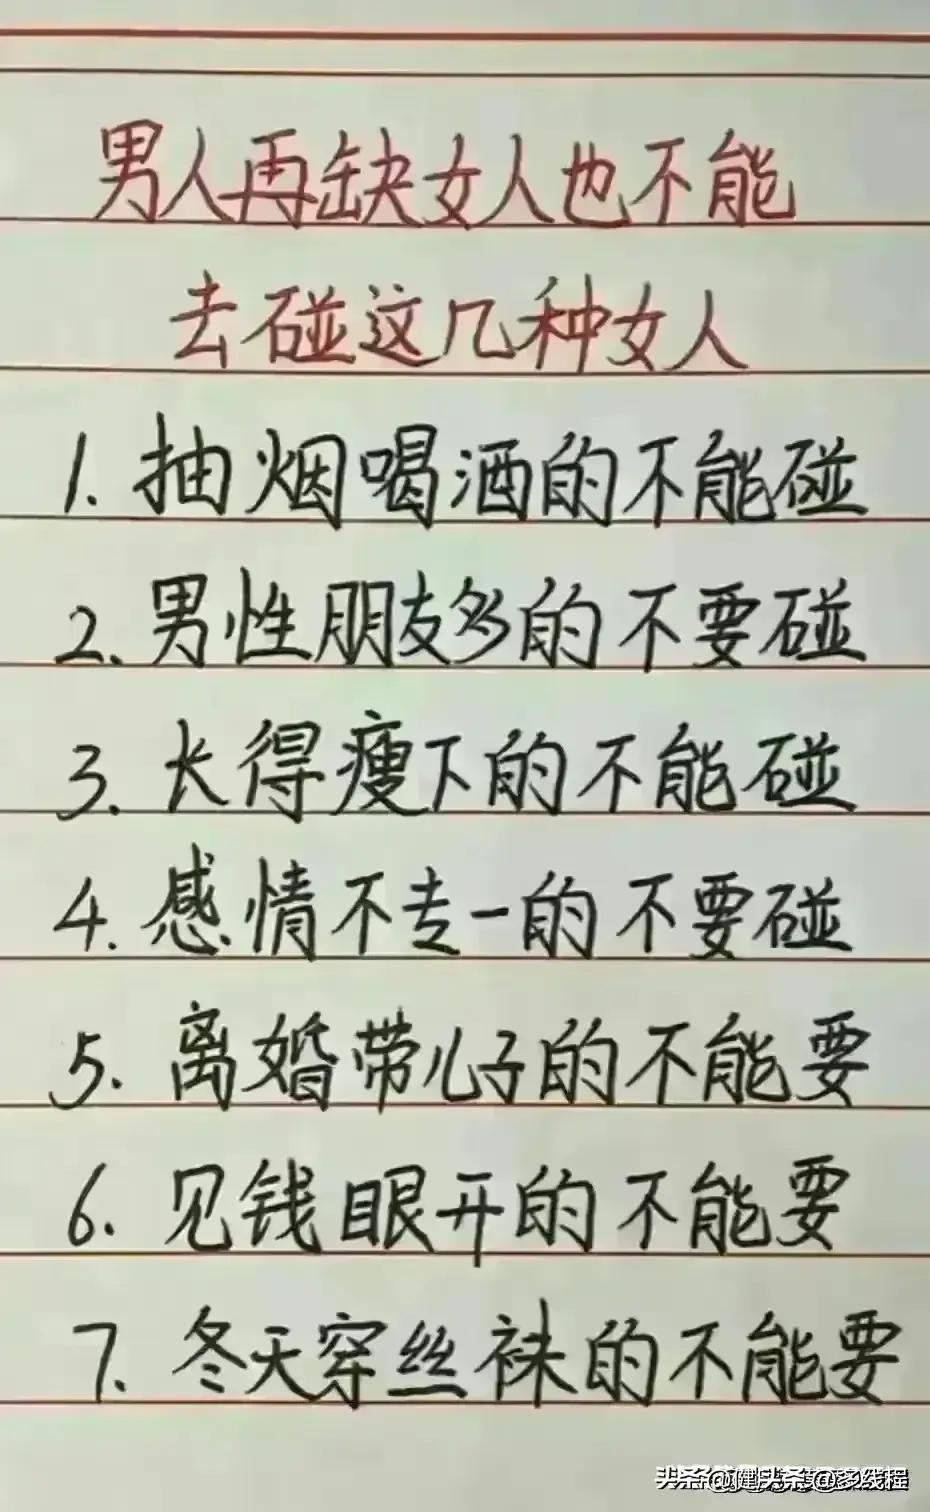 男人再缺女人也不能
去碰这几种女人
1. 抽烟喝酒的不能碰
2. 男性朋友多的不要碰
3. 长得瘦下的不能碰
4. 感情不专一的不要碰
5. 离婚带儿子的不能要
6. 见钱眼开的不能要
7. 冬天穿丝袜的不能要
头条@多线程